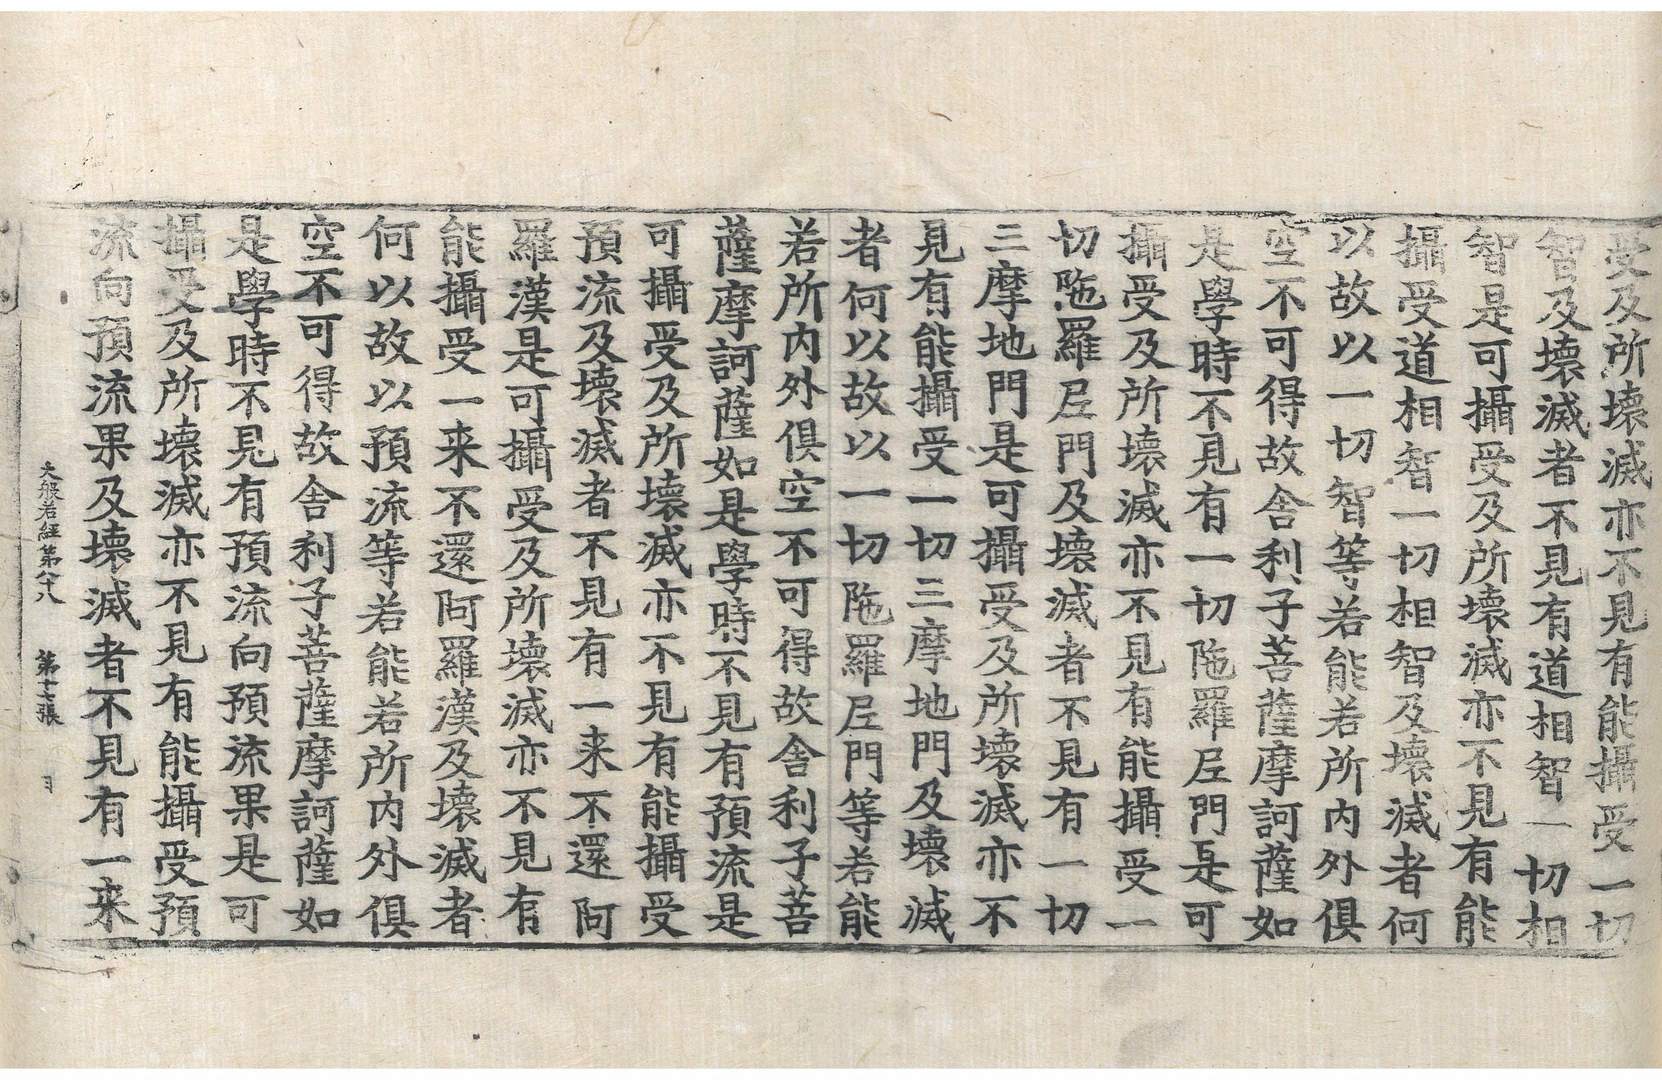 受及所壞滅亦不見有能攝受一切
智及壞滅者不見有道相智一切相
智是可攝受及所壞滅亦不見有能
攝受道相智一切相智及壞滅者何
以故以一切智等若能若所內外俱
空不可得故舍利子菩薩摩訶薩如
是學時不見有一切陁羅尼門是可
攝受及所壞滅亦不見有能攝受一
切陁羅尼門及壞滅者不見有一切
三摩地門是可攝受及所壞滅亦不
見有能攝受一切三摩地門及壞滅
者何以故以一切陁羅尼門等若能
若所內外俱空不可得故舍利子菩
薩摩訶薩如是學時不見有預流是
可攝受及所壞滅亦不見有能攝受
預流及壞滅者不見有一来不還阿
羅漢是可攝受及所壞滅亦不見有
能攝受一来不還阿羅漢及壞滅者
何以故以預流等若能若所內外俱
空不可得故舍利子菩薩摩訶薩如
是學時不見有預流向預流果是可
攝受及所壞滅亦不見有能攝受預
流向預流果及壞滅者不見有一来
大般若經第八十八 第十六張